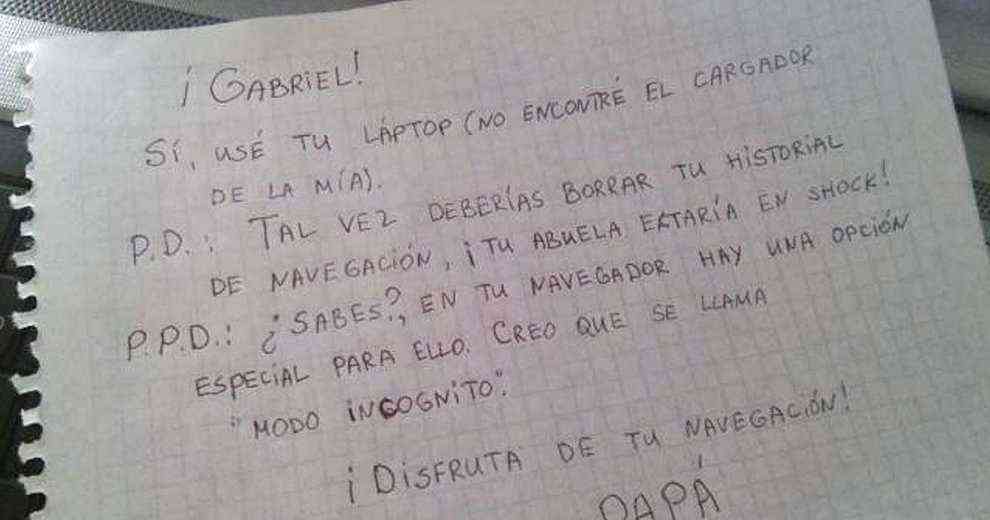 ¡GABRIEL!
SÍ, USÉ TU LÁPTOP (NO ENCONTRÉ EL CARGADOR
DE LA MÍA).
P.D.: TAL VEZ DEBERÍAS BORRAR TU HISTORIAL
DE NAVEGACIÓN, ¡TU ABUELA EXTARÍA EN SHOCK!
P.P.D.: ¿SABES?, EN TU NAVEGADOR HAY UNA OPCIÓN
ESPECIAL PARA ELLO. CREO QUE SE LLAMA
"MODO INCOGNITO".
¡DISFRUTA DE TU NAVEGACIÓN!
PAPÁ